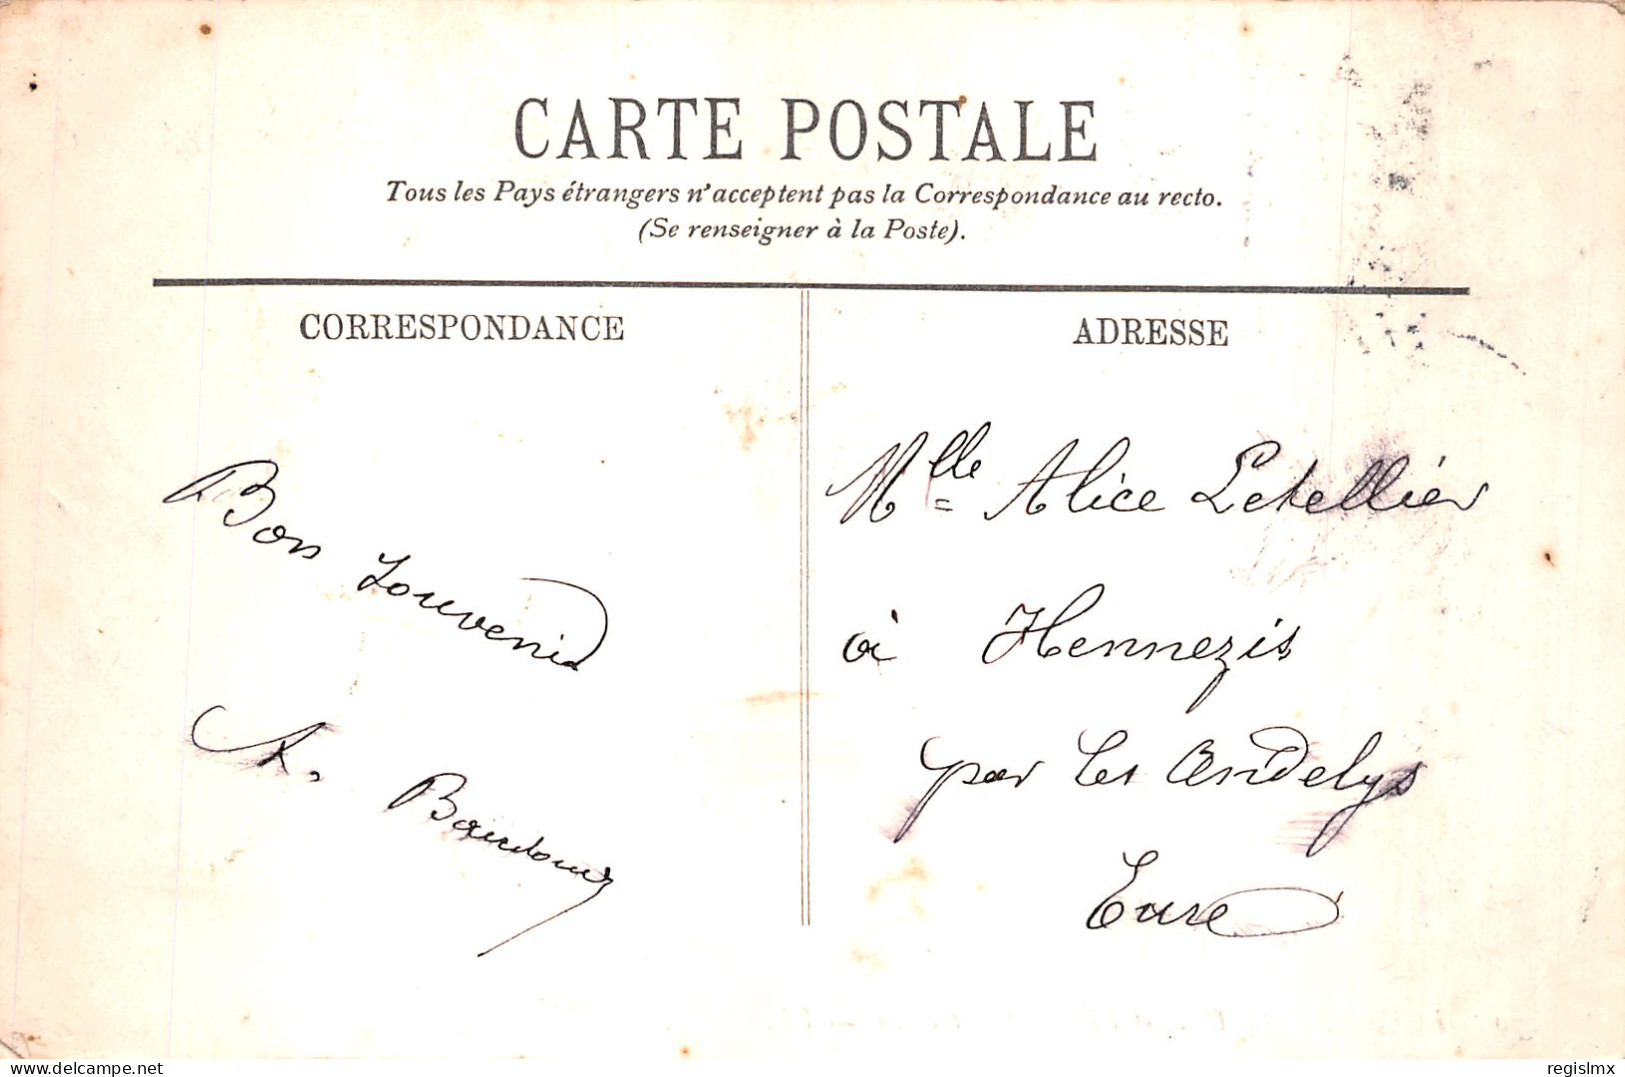 CARTE POSTALE
Tous les Pays étrangers n'acceptent pas la Correspondance au recto.
(Se renseigner à la Poste).
CORRESPONDANCE
Bon souvenir
A.
ADRESSE
Mlle Alice Letellier
à Hennezis
par Les Andelys
Eure
delcampe.net
regislmx